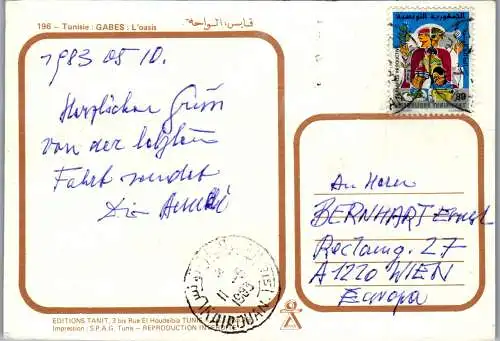 196 – Tunisie : GABES : L'oasis قـابس: الـواحـة
1983 05 10.
Herzlichen Gruss
von der letzten
Fahrt sendet
Die
An Herrn
BERNHART Ernst
A 1220 WIEN
Europa
الجمهورية التونسية
80
REPUBLIQUE TUNISIENNE
KAIROUAN
1983
EDITIONS TANIT, 3 bis Rue El Houdeibia TUNIS
Impression : S.P.A.G. Tunis – REPRODUCTION